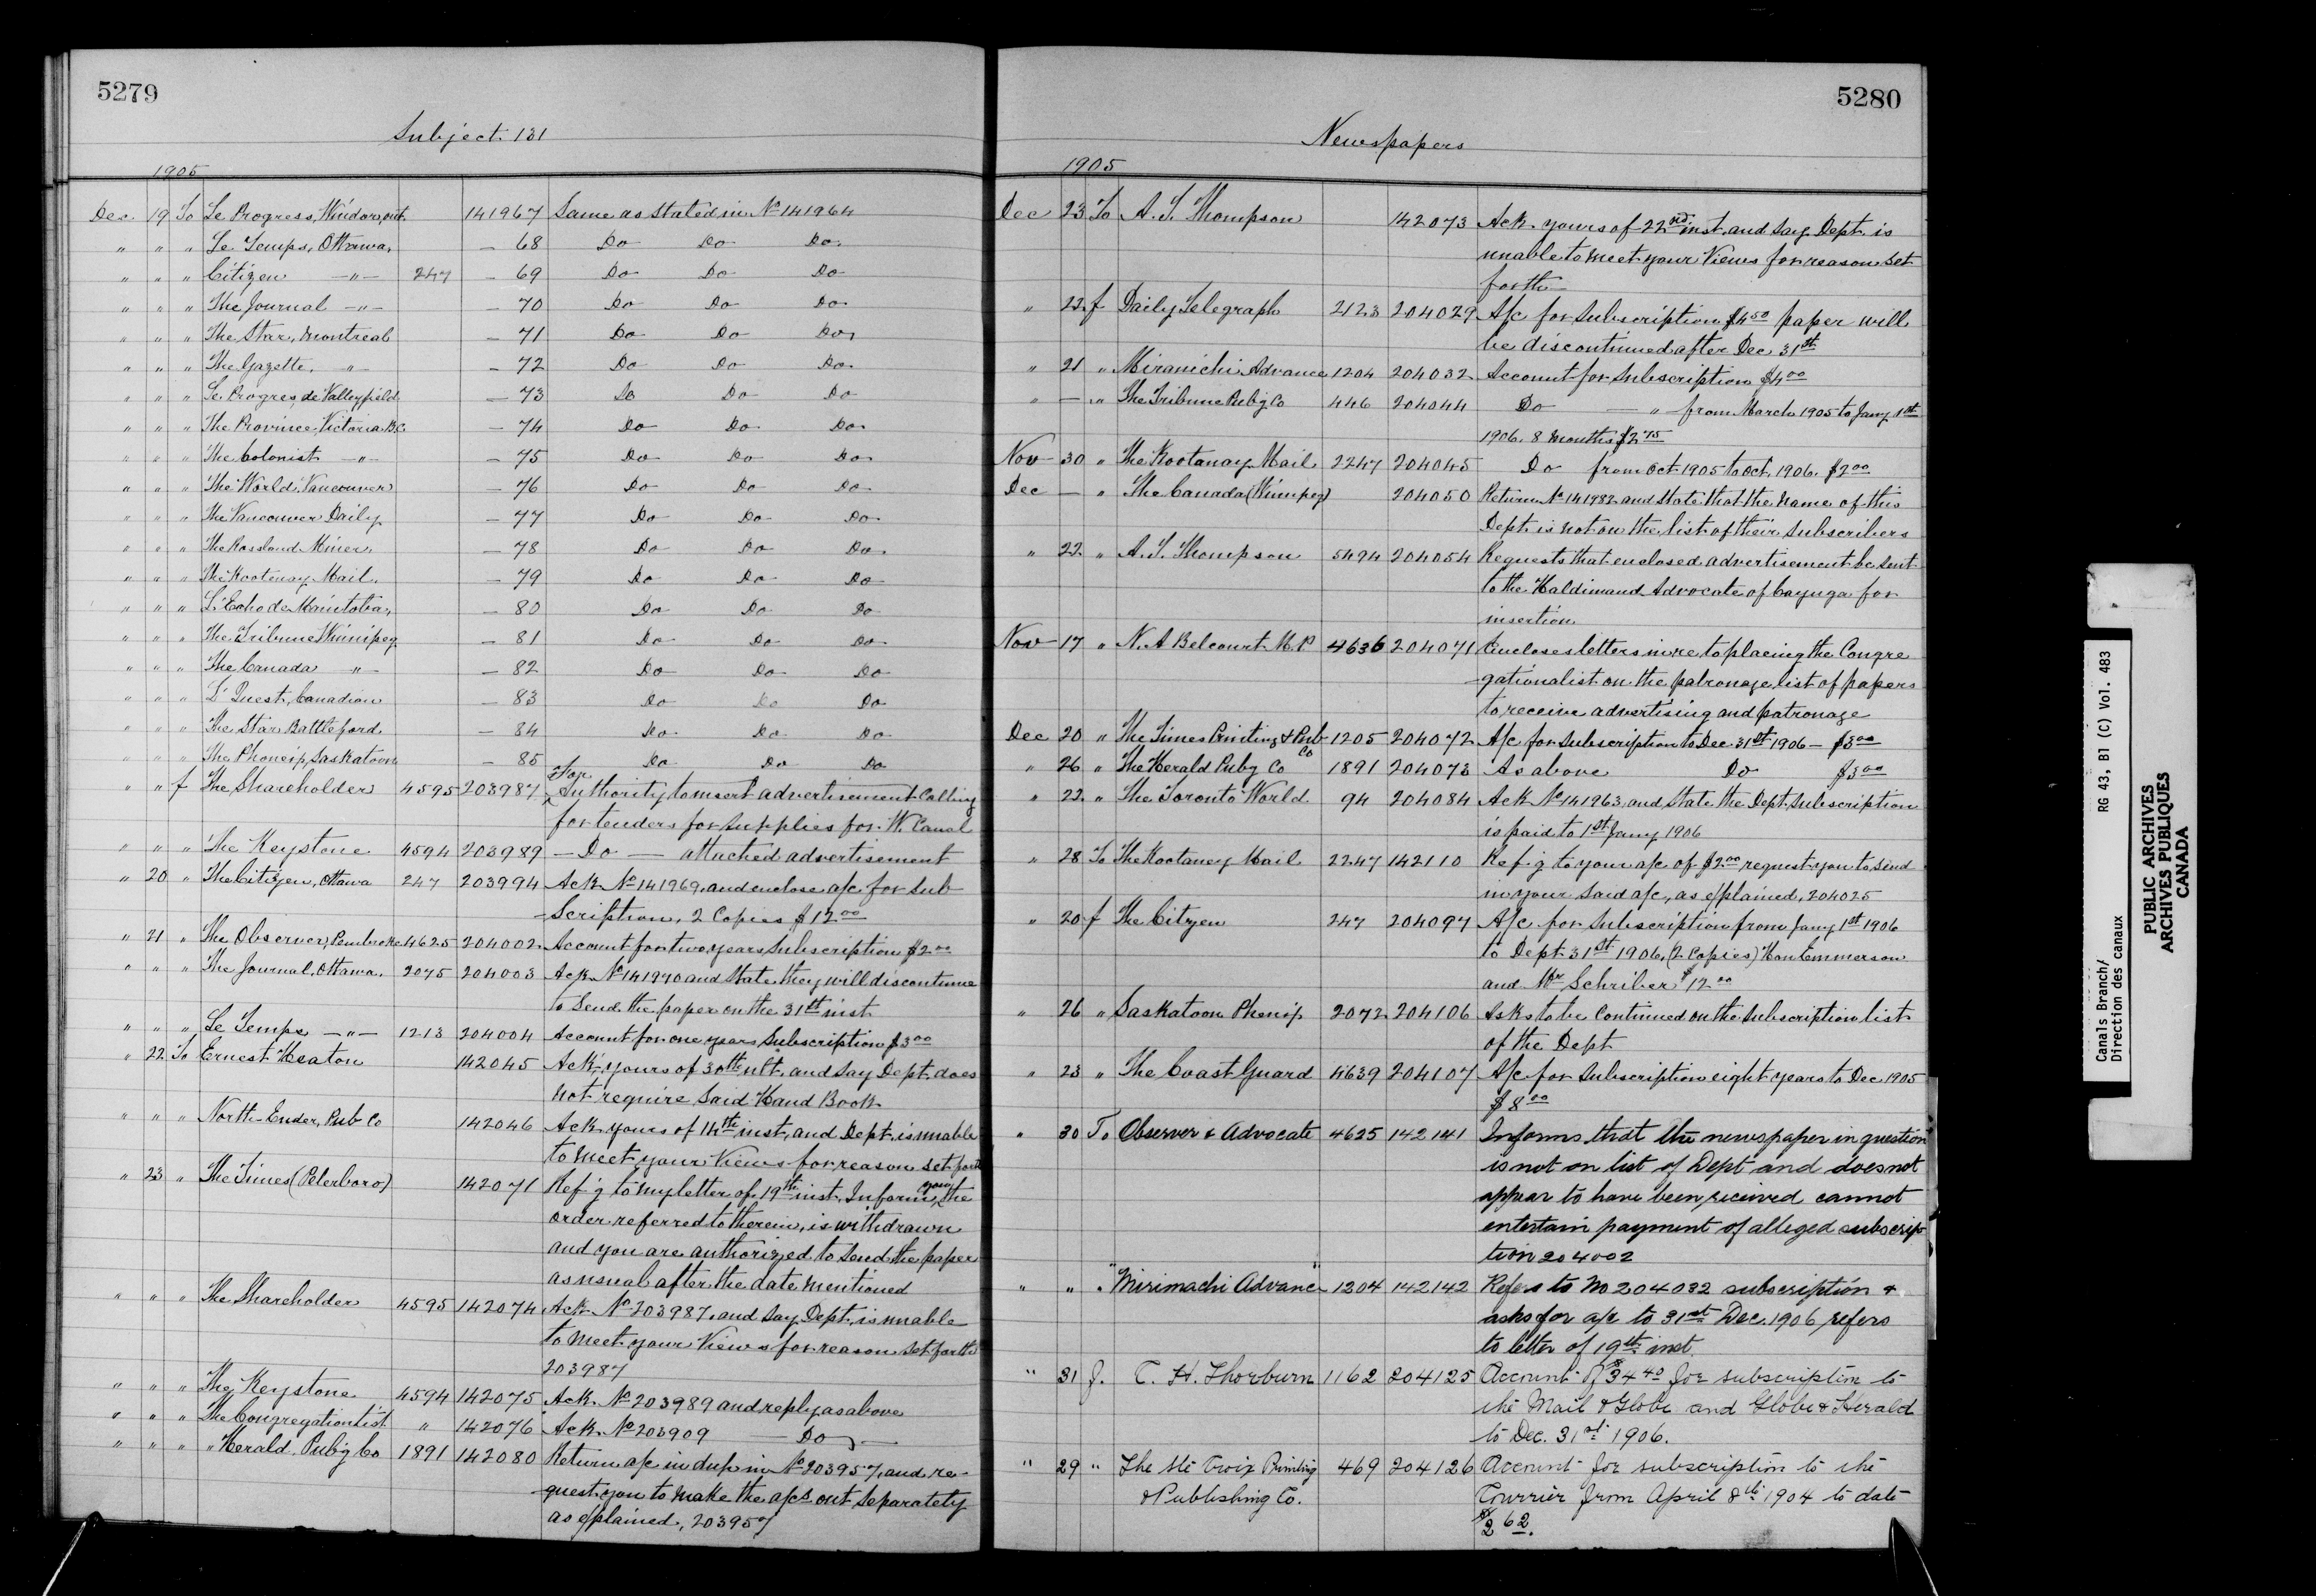 5279
Subject 131
1905
Dec. 19 To Le Progress, Windsor, Ont. 141967 Same as stated in No 141964
" " " Le Temps, Ottawa, — 68 Do Do Do
" " " Citizen —"— 247 — 69 Do Do Do
" " " The Journal —"— — 70 Do Do Do
" " " The Star, Montreal — 71 Do Do Do
" " " The Gazette, —"— — 72 Do Do Do
" " " Le Progres de Valleyfield — 73 Do Do Do
" " " The Province, Victoria B.C. — 74 Do Do Do
" " " The Colonist —"— — 75 Do Do Do
" " " The World, Vancouver — 76 Do Do Do
" " " The Vancouver Daily — 77 Do Do Do
" " " The Rossland Miner, — 78 Do Do Do
" " " The Kootenay Mail, — 79 Do Do Do
" " " L'Echo de Manitoba, — 80 Do Do Do
" " " The Tribune Winnipeg — 81 Do Do Do
" " " The Canada —"— — 82 Do Do Do
" " " L'Ouest, Canadien — 83 Do Do Do
" " " The Star Battleford — 84 Do Do Do
" " " The Phoenix, Saskatoon — 85 Do Do Do
" " f The Shareholder 4595 203987 For Authority to insert advertisement calling
for tenders for supplies for W. Canal
" " " The Keystone 4594 203989 — Do — attached advertisement
" 20 " The Citizen, Ottawa 247 203994 Ack No 141969, and enclose a/c for Sub
scription, 2 Copies $12.00
" 21 " The Observer, Pembroke 4625 204002 Account for two years Subscription $2.00
" " " The Journal, Ottawa. 2075 204003 Ack No 141970 and state they will discontinue
to send the paper on the 31st inst
" " " Le Temps —"— 1213 204004 Account for one years Subscription $3.00
" 22 To Ernest Heaton 142045 Ack, yours of 30th ult, and say Dept. does
not require said Hand Book
" " " North-Ender, Pub Co 142046 Ack yours of 14th inst, and Dept. is unable
to meet your Views for reason set forth
" 23 " The Times (Peterboro) 142071 Ref'g to my letter of 19th inst, Inform you, the
order referred to therein, is withdrawn
and you are authorized to send the paper
as usual after the date mentioned
" " " The Shareholder 4595 142074 Ack No 203987, and say Dept. is unable
to meet your Views for reason set forth
203987
" " " The Keystone 4594 142075 Ack No 203989 and reply as above
" " " The Congregationlist " 142076 Ack No 203909 — Do —
" " " " Herald Pub'g Co 1891 142080 Return a/c in dup in No 203957, and re-
quest you to make the a/cs out separately
as explained, 203957
5280
Newspapers
1905
Dec 23 To A. T. Thompson 142073 Ack. yours of 22nd inst, and say Dept. is
unable to meet your Views for reason set
forth
" 22 f Daily Telegraph 2123 204029 A/c for Subscription $4.50 paper will
be discontinued after Dec 31st
" 21 " Miramichi Advance 1204 204032 Account for Subscription $4.00
" — " The Tribune Pub'g Co 446 204044 Do — " — from March 1905 to Jany 1st
1906. 8 Months $2.75
Nov 30 " The Kootanay Mail 2247 204045 Do from Oct 1905 to Oct, 1906. $2.00
Dec — " The Canada (Winnipeg) 204050 Return No 141982 and state that the name of this
Dept. is not on the list of their subscribers
" 22 " A. T. Thompson 5494 204054 Requests that enclosed advertisement be sent
to the Haldimand Advocate of Cayuga for
insertion
Nov 17 " N. A Belcourt M.P 4636 204071 Encloses letters in re to placing the Congre
gationalist on the patronage list of papers
to receive advertising and patronage
Dec 20 " The Times Printing & Pub Co 1205 204072 A/c for Subscription to Dec 31st 1906 — $3.00
" 26 " The Herald Pub'g Co 1891 204073 As above Do $3.00
" 22 " The Toronto World 94 204084 Ack No 141963, and state the Dept. Subscription
is paid to 1st Jany 1906
" 28 To The Kootaney Mail 2247 142110 Ref'g to your a/c of $2.00 request you to send
in your said a/c, as explained, 204025
" 20 f The Citizen 247 204097 A/c for Subscription from Jany 1st 1906
to Dept 31st 1906. (2 Copies) Hon Emmerson
and Mr Schriber $12.00
" 26 " Saskatoon Phenix 2072 204106 Asks to be Continued on the Subscription list
of the Dept
" 23 " The Coast Guard 4639 204107 A/c for Subscription eight years to Dec 1905
$8.00
" 30 To Observer & Advocate 4625 142141 Informs that the newspaper in question
is not on list of Dept and does not
appear to have been received cannot
entertain payment of alleged subscrip
tion 204002
" " " "Mirimachi Advance" 1204 142142 Refers to No 204032 subscription &
asks for a/c to 31st Dec. 1906, refers
to letter of 19th inst.
" 31 f. T. H. Thorburn 1162 204125 Account of $34.40 for subscription to
the Mail & Globe and Globe & Herald
to Dec. 31st 1906.
" 29 " The Ste Croix Printing 469 204126 Account for subscription to the
& Publishing Co. Courrier from April 8th 1904 to date
$2.62.
Canals Branch/ RG 43, B1 (C) Vol. 483
Direction des canaux
PUBLIC ARCHIVES
ARCHIVES PUBLIQUES
CANADA